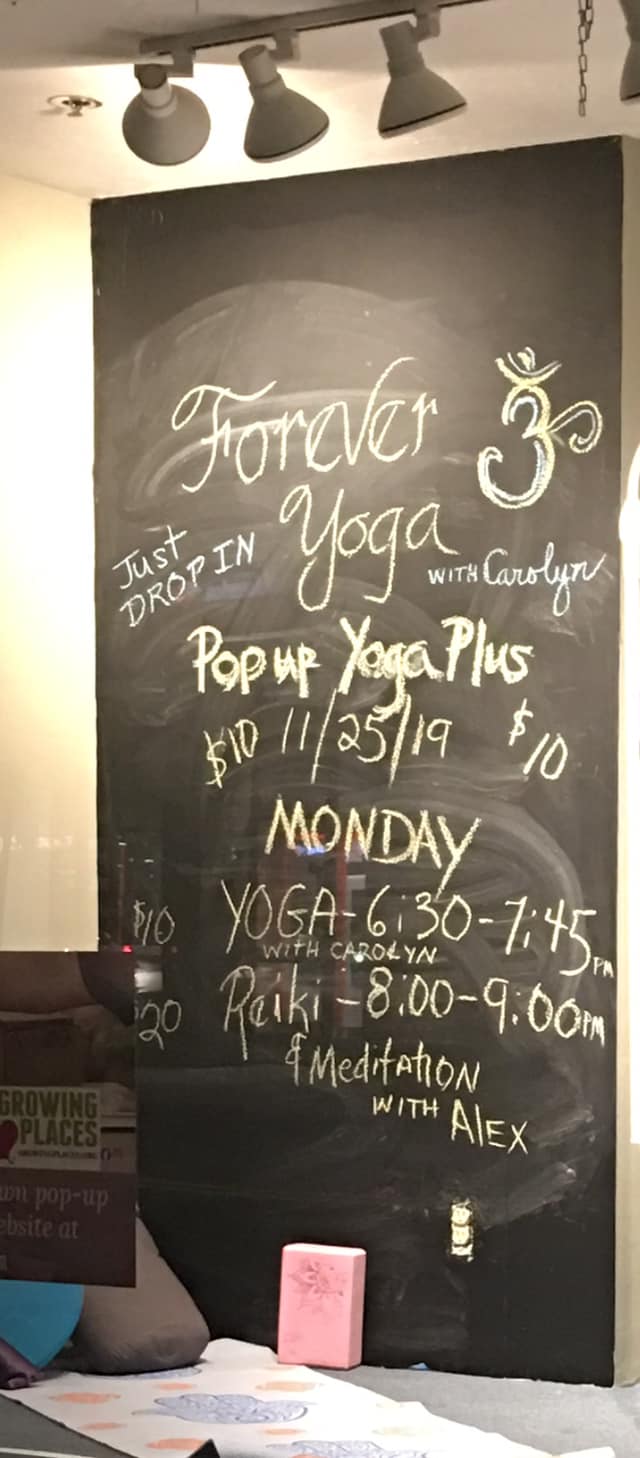 Forever
ॐ
Yoga
Just
DROP IN
WITH Carolyn
Pop up Yoga Plus
$10 11/25/19 $10
MONDAY
$10 YOGA-6:30-7:45PM
WITH CAROLYN
$20 Reiki-8:00-9:00PM
& Meditation
WITH ALEX
GROWING
PLACES
wn pop-up
ebsite at